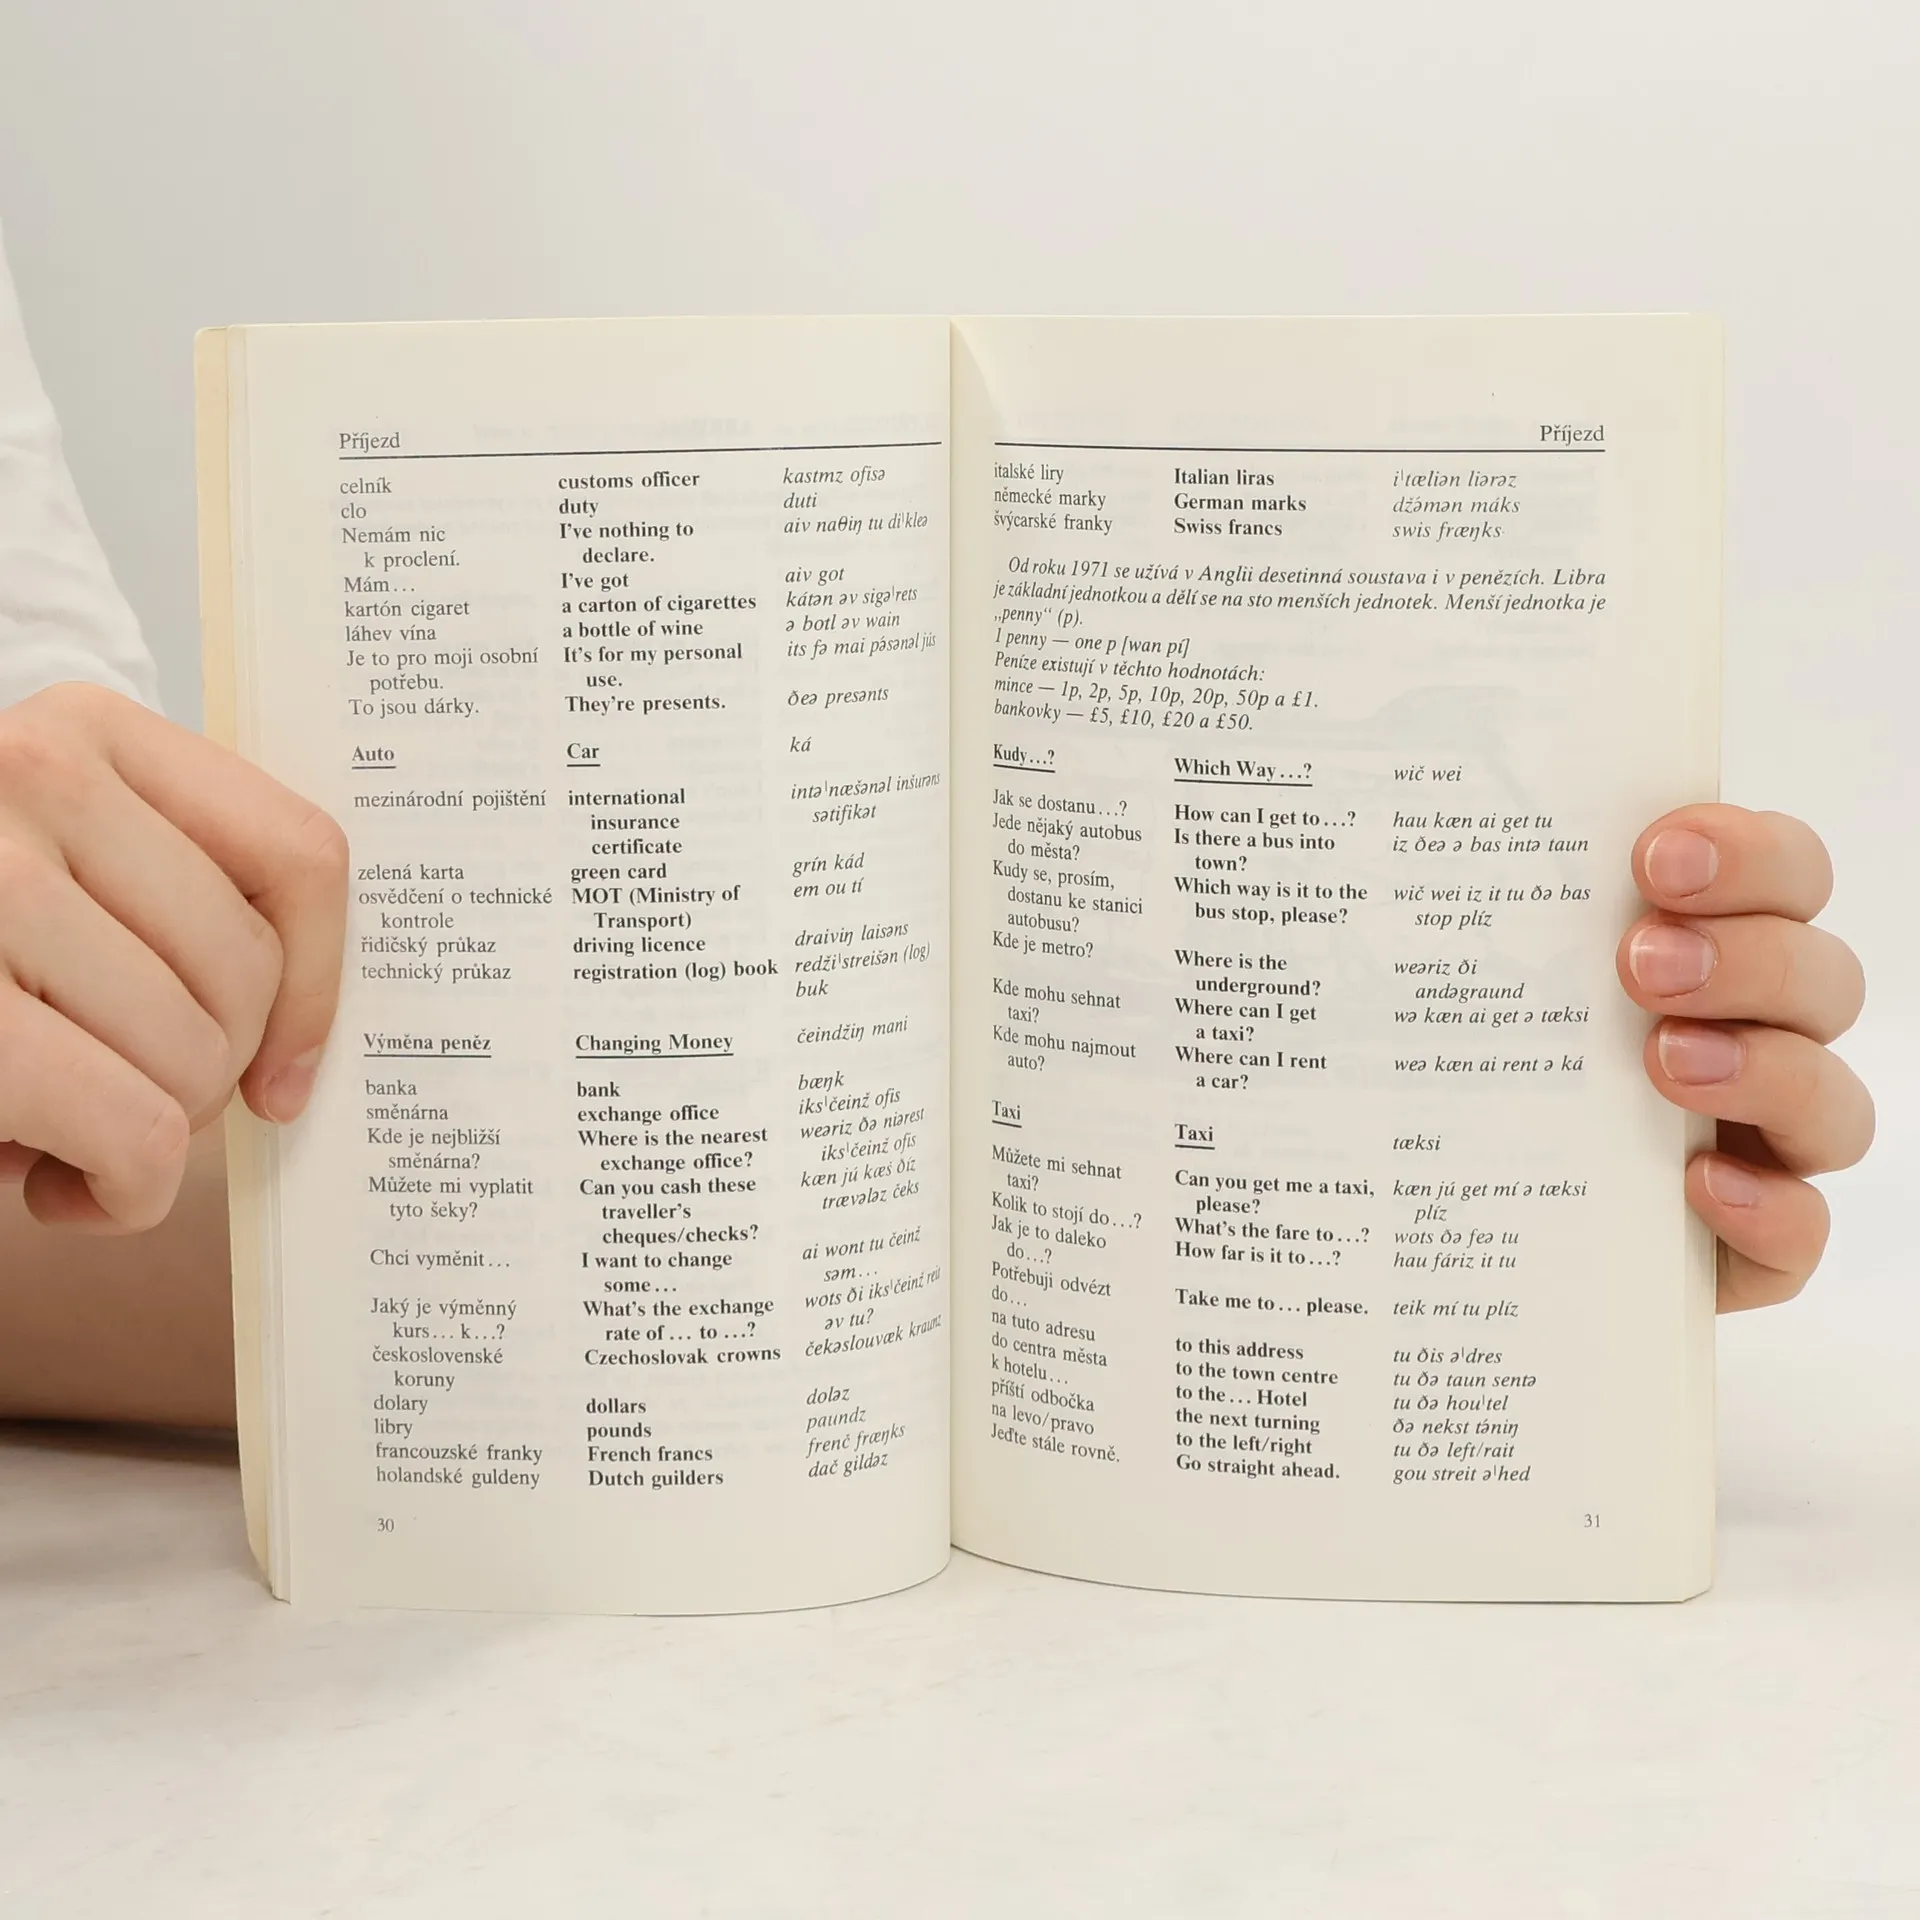 Příjezd
celník customs officer kastmz ofisə
clo duty duti
Nemám nic I've nothing to aiv naθiŋ tu di'kleə
k proclení. declare.
Mám... I've got aiv got
kartón cigaret a carton of cigarettes kátən əv sigə'rets
láhev vína a bottle of wine ə botl əv wain
Je to pro moji osobní It's for my personal its fə mai pə́sənəl jús
potřebu. use.
To jsou dárky. They're presents. ðeə presənts
Auto Car ká
mezinárodní pojištění international intə'næšənəl inšurəns
insurance sətifikət
certificate
zelená karta green card grín kád
osvědčení o technické MOT (Ministry of em ou tí
kontrole Transport)
řidičský průkaz driving licence draiviŋ laisəns
technický průkaz registration (log) book redži'streišən (log)
buk
Výměna peněz Changing Money čeindžiŋ mani
banka bank bæŋk
směnárna exchange office iks'čeinž ofis
Kde je nejbližší Where is the nearest weəriz ðə niərest
směnárna? exchange office? iks'čeinž ofis
Můžete mi vyplatit Can you cash these kæn jú kæš ðíz
tyto šeky? traveller's trævələz čeks
cheques/checks?
Chci vyměnit... I want to change ai wont tu čeinž
some... səm...
Jaký je výměnný What's the exchange wots ði iks'čeinž reit
kurs... k...? rate of... to ...? əv tu?
československé Czechoslovak crowns čekəslouvæk kraunz
koruny
dolary dollars doləz
libry pounds paundz
francouzské franky French francs frenč fræŋks
holandské guldeny Dutch guilders dač gildəz
30
Příjezd
italské liry Italian liras i'tæliən liərəz
německé marky German marks džə́mən máks
švýcarské franky Swiss francs swis fræŋks
Od roku 1971 se užívá v Anglii desetinná soustava i v penězích. Libra
je základní jednotkou a dělí se na sto menších jednotek. Menší jednotka je
„penny“ (p).
1 penny — one p [wan pí]
Peníze existují v těchto hodnotách:
mince — 1p, 2p, 5p, 10p, 20p, 50p a £1.
bankovky — £5, £10, £20 a £50.
Kudy...? Which Way...? wič wei
Jak se dostanu...? How can I get to...? hau kæn ai get tu
Jede nějaký autobus Is there a bus into iz ðeə ə bas intə taun
do města? town?
Kudy se, prosím, Which way is it to the wič wei iz it tu ðə bas
dostanu ke stanici bus stop, please? stop plíz
autobusu?
Kde je metro? Where is the weəriz ði
underground? andəgraund
Kde mohu sehnat Where can I get wə kæn ai get ə tæksi
taxi? a taxi?
Kde mohu najmout Where can I rent weə kæn ai rent ə ká
auto? a car?
Taxi Taxi tæksi
Můžete mi sehnat Can you get me a taxi, kæn jú get mí ə tæksi
taxi? please? plíz
Kolik to stojí do...? What's the fare to...? wots ðə feə tu
Jak je to daleko How far is it to...? hau fáriz it tu
do...?
Potřebuji odvézt Take me to... please. teik mí tu plíz
do...
na tuto adresu to this address tu ðis ə'dres
do centra města to the town centre tu ðə taun sentə
k hotelu... to the... Hotel tu ðə hou'tel
příští odbočka the next turning ðə nekst tə́niŋ
na levo/pravo to the left/right tu ðə left/rait
Jeďte stále rovně. Go straight ahead. gou streit ə'hed
31